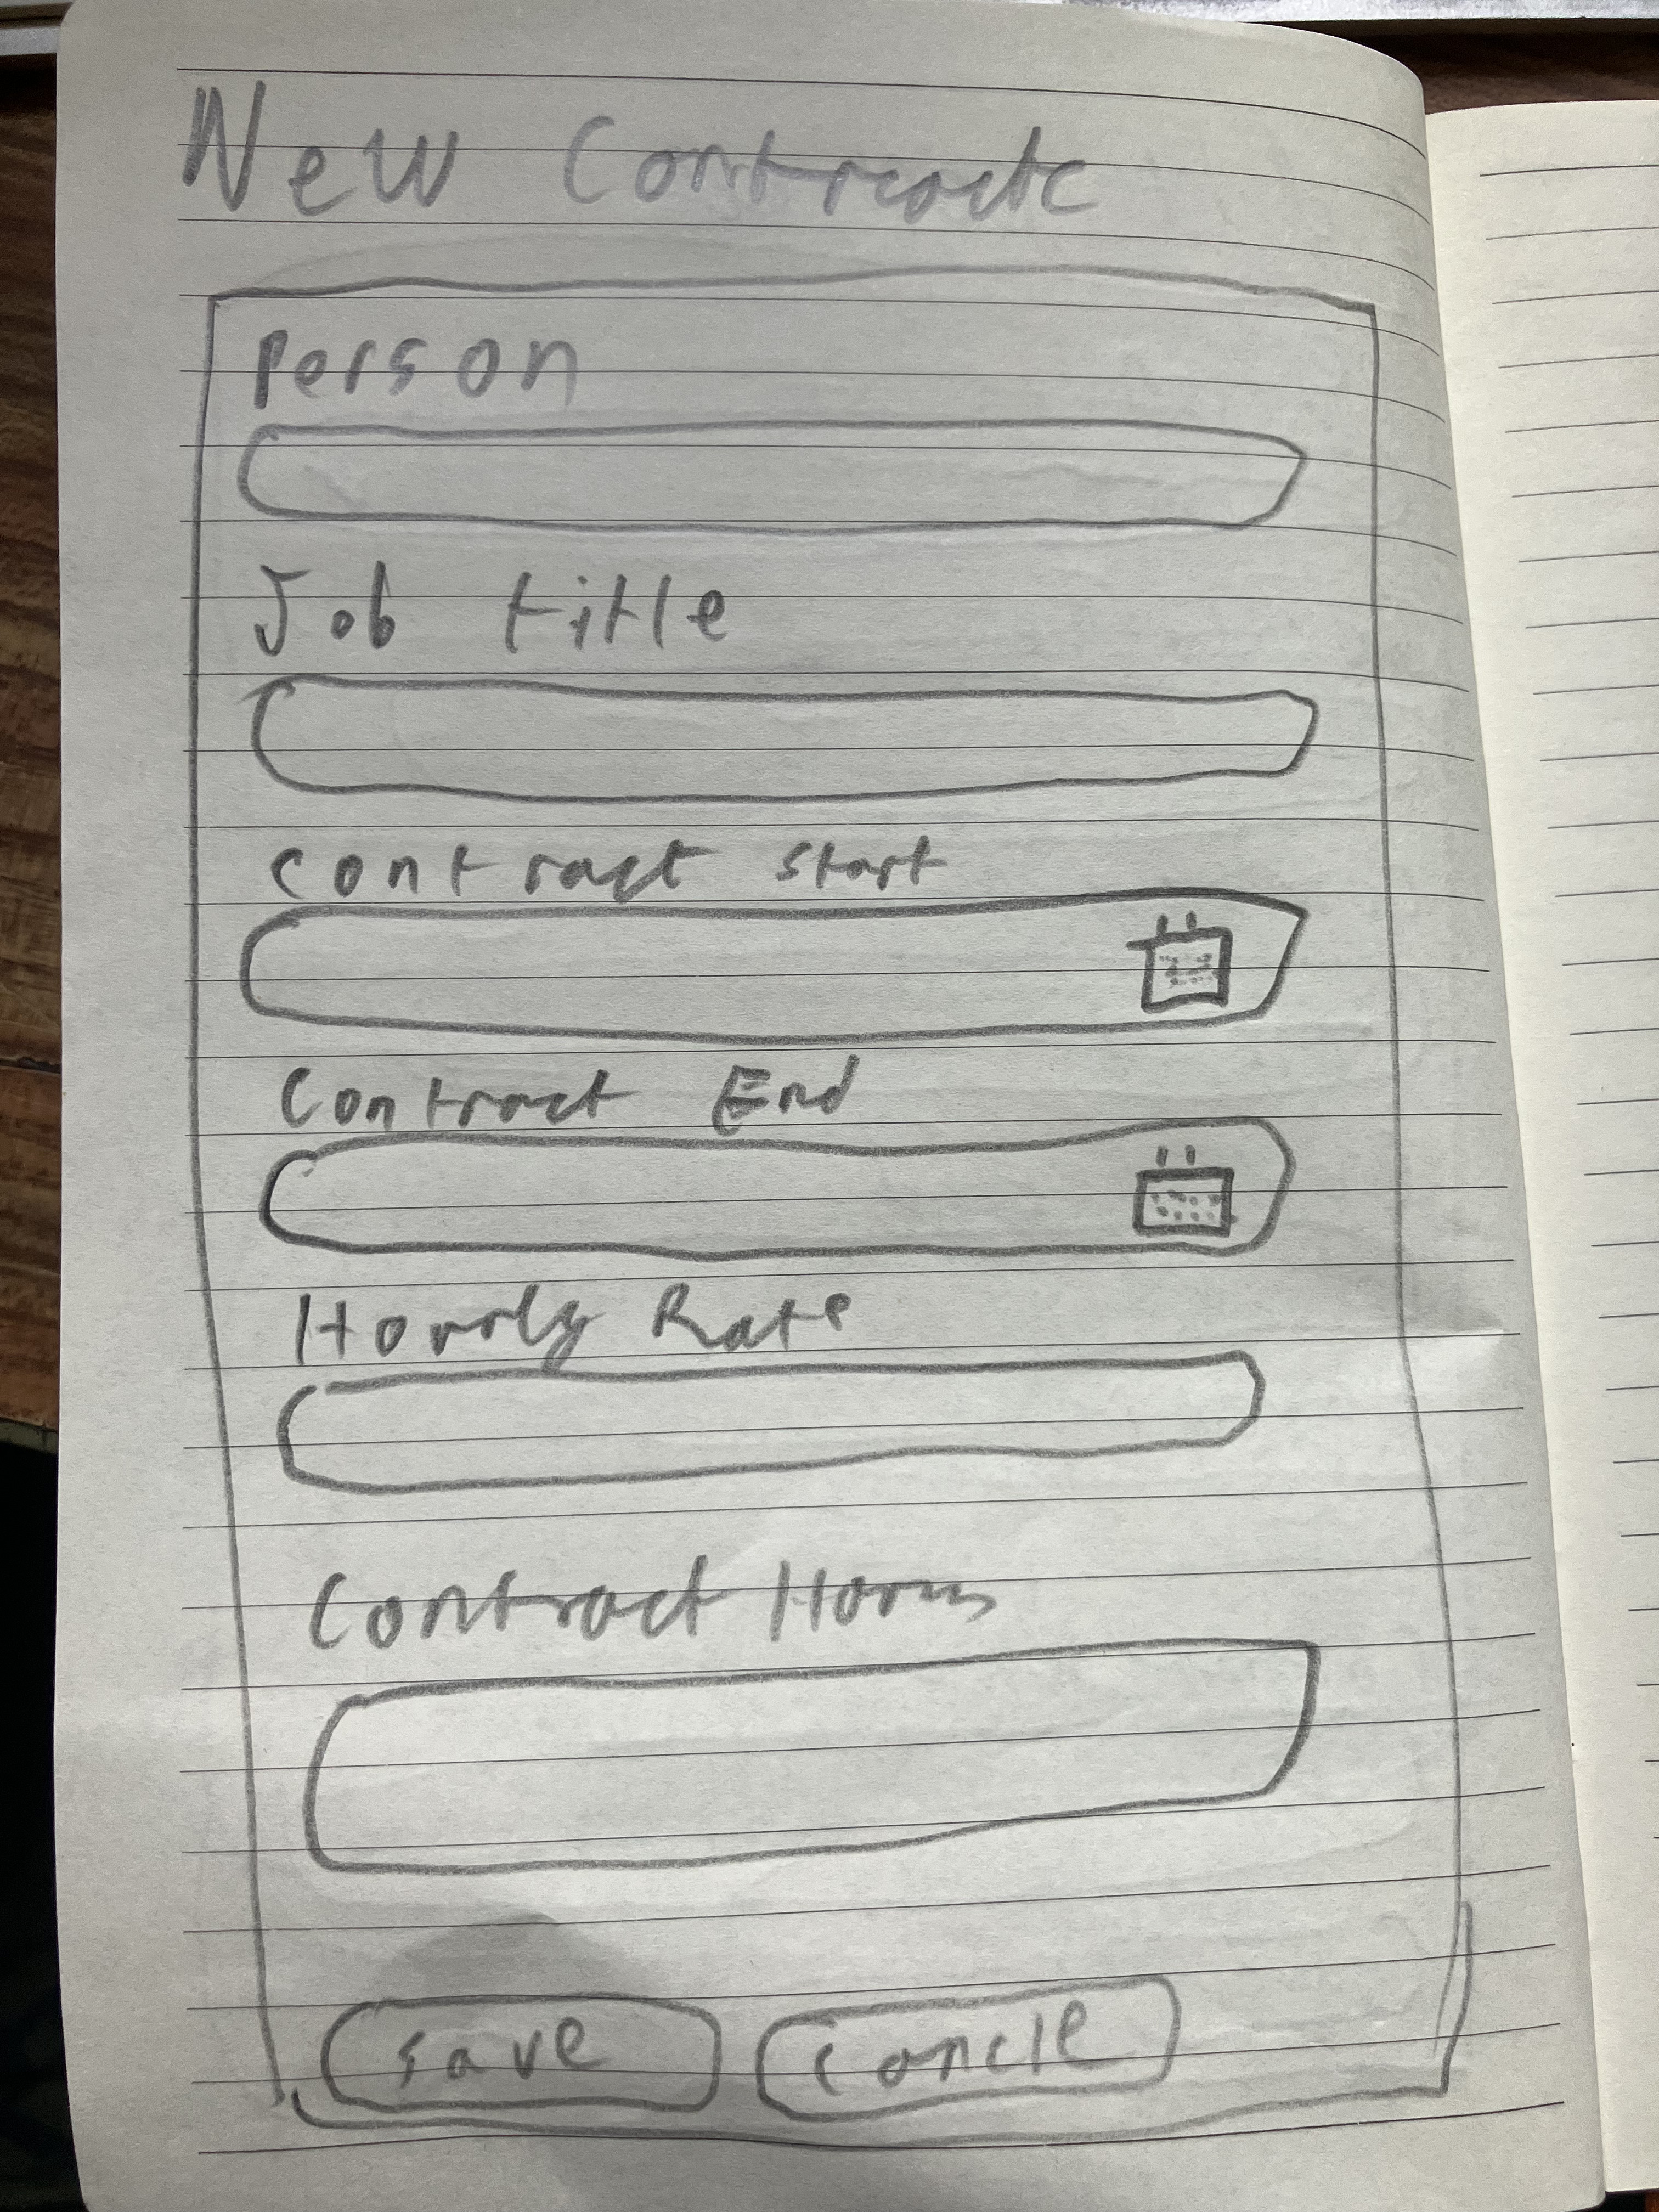 New Contracte
Person
Job title
Contract start
Contract End
Hourly Rate
Contract Hours
save
cancle